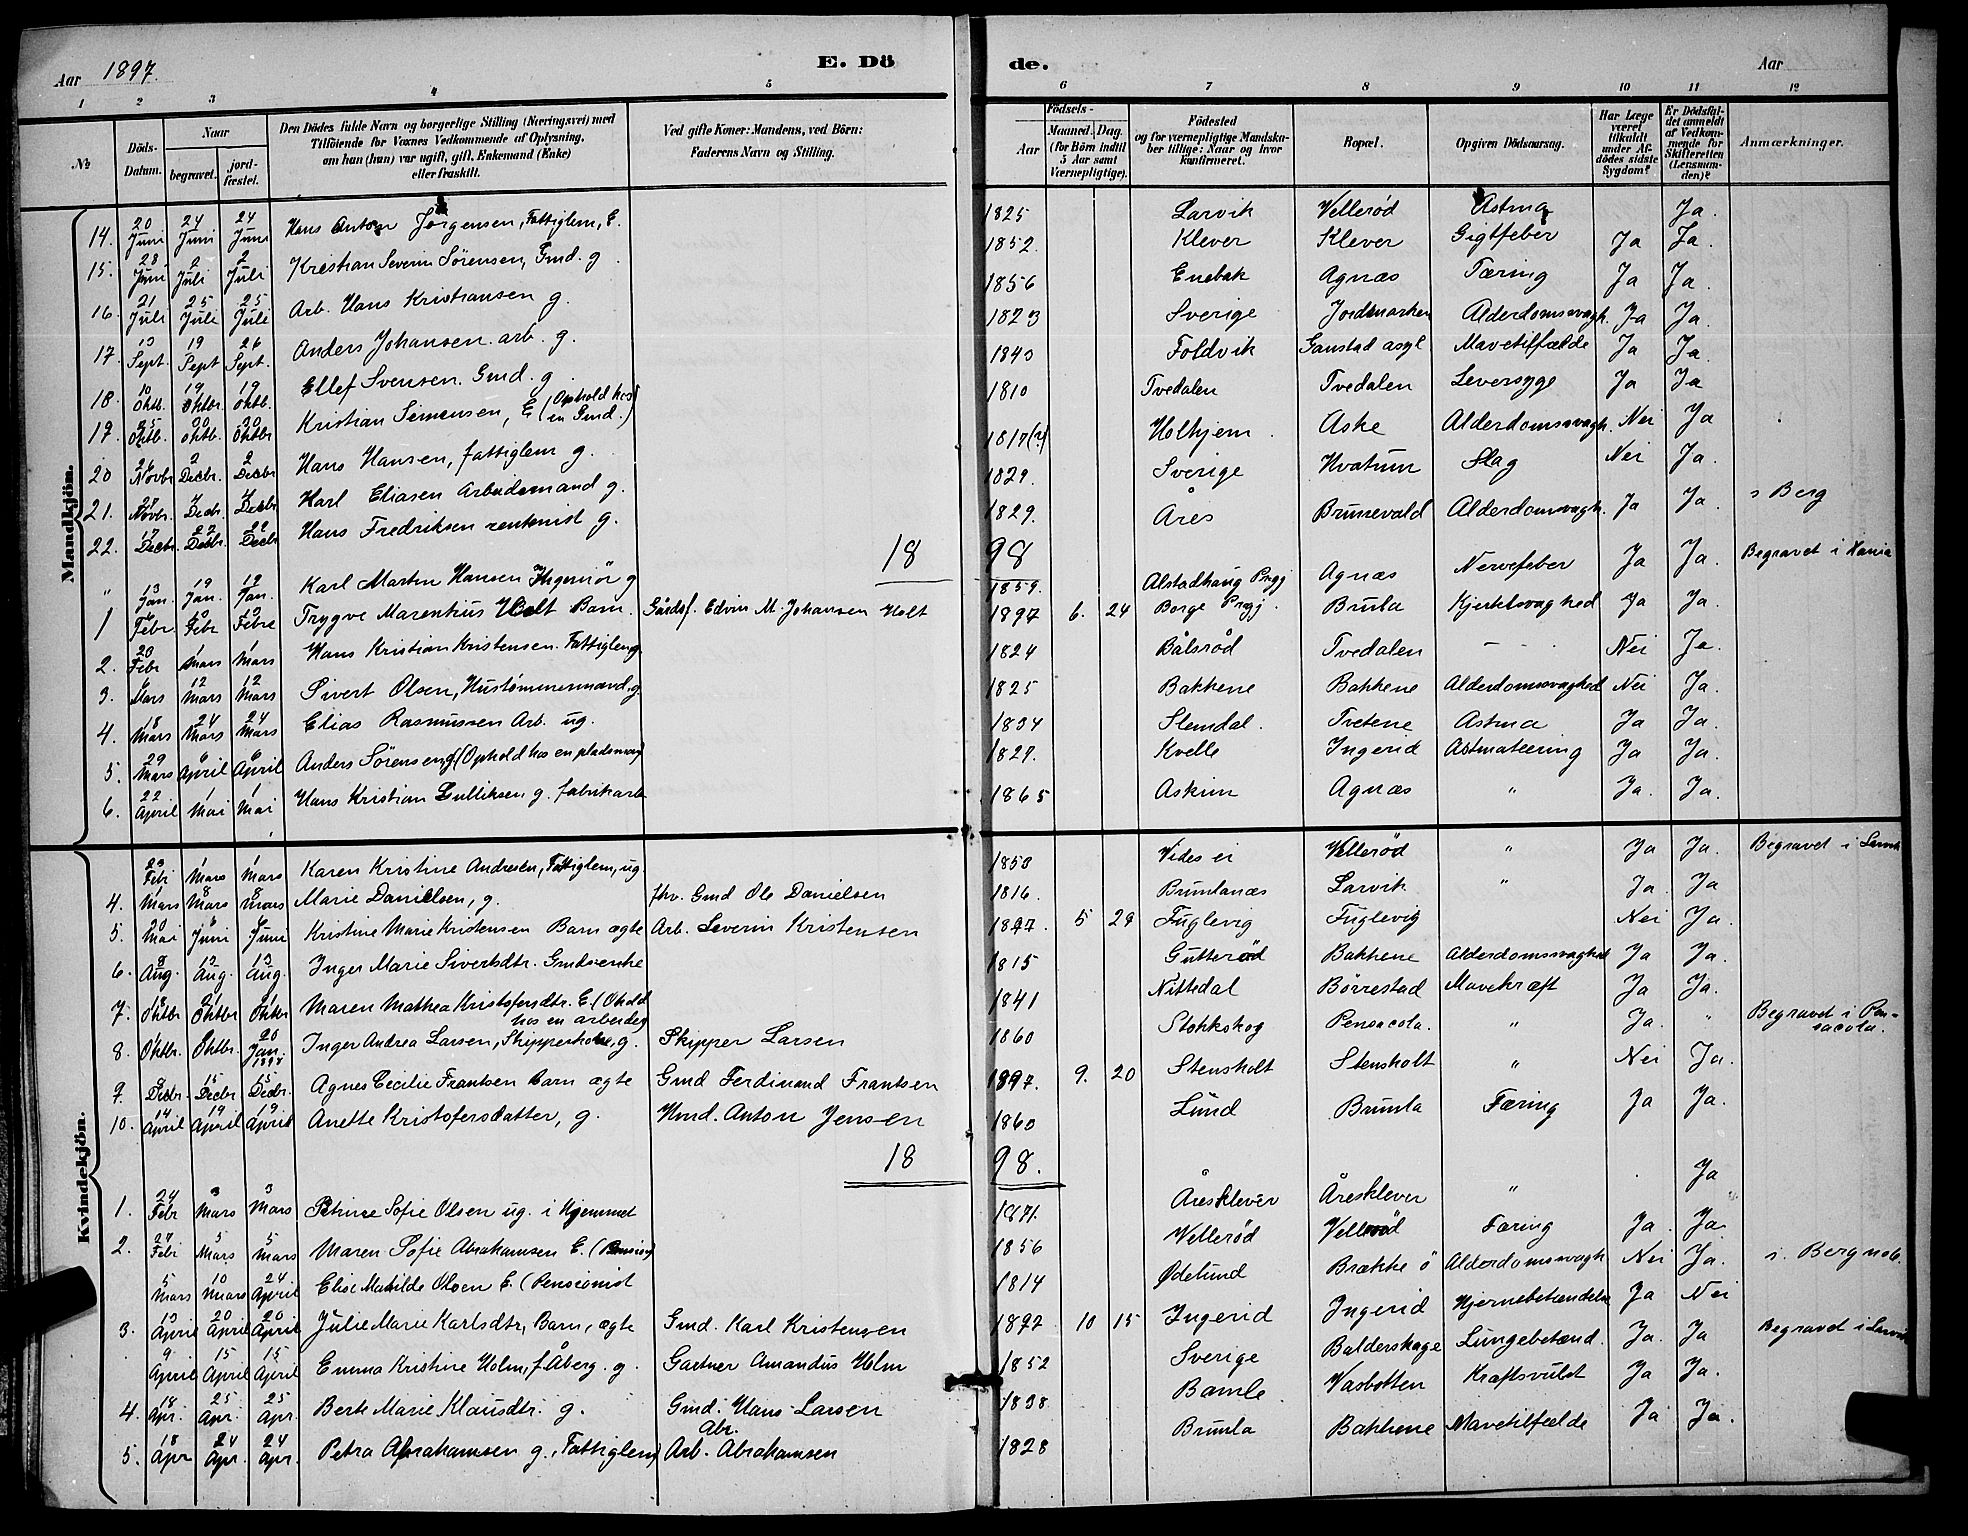 Aar 1897. E. Dö de. Aar
1 2 3 4 5 6 7 8 9 10 11 12
№ Döds-Datum. Naar begravet. jordfæstet. Den Dödes fulde Navn og borgerlige Stilling (Næringsvei) med Tilföiende for Voxnes Vedkommende af Oplysning, om han (hun) var ugift, gift, Enkemand (Enke) eller fraskilt. Ved gifte Koner: Mandens, ved Börn: Faderens Navn og Stilling. Födsels- Aar Maaned. Dag. (for Börn indtil 5 Aar samt Værnepligtige). Födested og for værnepligtige Mandskaber tillige: Naar og hvor Konfirmeret. Bopæl. Opgiven Dödsaarsag. Har Læge været tilkaldt under Afdödes sidste Sygdom? Er Dödsfaldet anmeldt af Vedkommende for Skifteretten (Lensmanden)? Anmærkninger.
Mandkjön.
14. 20 Juni 24 Juni 24 Juni Hans Anton Jørgensen, Fattiglem, E. 1825 Larvik Vellerød Astma Ja.
15. 28 Juni 2 Juli 2 Juli Kristian Severin Sørensen, Gmd. g 1852. Klever Klever Gigtfeber Ja Ja.
16. 21 Juli 25 Juli 25 Juli Arb. Hans Kristiansen g. 1856 Enebak Agnæs Tæring Ja Ja.
17. 13 Sept. 19 Sept 26 Sept. Anders Johansen arb. g. 1823 Sverige Jordmarken Alderdomssvagh. Ja Ja.
18. 10 Oktb. 19 Oktbr 19 Oktb. Ellef Svensen. Gmd. g 1843 Foldvik Ganstad asyl Mavetilfælde Ja Ja.
19. 25 Oktb. 30 Oktb. 30 Oktbr Kristian Simensen, E (Ophold hos en Gmd.) 1810 Tvedalen Tvedalen Leversyge Ja Ja
20 26 Novbr 2 Decbr. 2 Decbr Hans Hansen, fattiglem g. 1817(?) Holhjem Aske Alderdomssvagh. Nei Ja
21. 27 Novbr. 7 Decbr. 7 Decbr Karl Eliasen Arbeidsmand g. 1829. Sverige Hvatum Slag Nei Ja.
22. 17 Decbr. 22 Decbr. 22 Decbr Hans Fredriksen rentenist g. 1829. Åres Brunevald Alderdomsvagh. Ja Ja. i Berg
18 98
" 13 Jan. 19 Jan. 19 Jan. Karl Martin Hansen Ingeniør g 1859. Alstadhaug Prgj Agnæs Nervefeber Ja Ja. Begravet i Kania
1 6 Febr. 12 Febr 12 Febr Trygve Marentius Holt Barn. Gårdsf. Edvin M. Johansen Holt 1897 6. 24 Borge Prgj. Brunla Hjertesvaghed Ja Ja.
2. 20 Febr 1 Mars 1 Mars Hans Kristian Kristensen. Fattiglem g 1824 Bålsrød Tvedalen - Nei Ja.
3. 6 Mars 12 Mars 12 Mars Sivert Olsen, Hustømmermand. g 1825 Bakkene Bakkene Alderdomssvaghed Nei Ja.
4. 18 Mars 24 Mars 24 Mars Elias Rasmussen Arb. ug. 1834 Slemdal. Tvetene Astma Ja Ja.
5. 29 Mars 6 April 6 April Anders Sørensen g (Ophold hos en pladsmand) 1827. Kvelle Ingerid Astmatæring Ja Ja.
6. 22 April 1 Mai 1 Mai Hans Kristian Gulliksen g. fabrikarb 1865 Askim Agnæs " Ja. Ja.
Kvindekjön.
23 Febr 1 Mars 1 Mars Karen Kristine Andresen, Fattiglem, ug. 1853 Vides ei Vellerød " Ja Ja. Begravet i Larvik
4. 1 Mars 8 Mars 8 Mars Marie Danielsen, g. fhv. Gmd Ole Danielsen 1816. Brunlanæs Larvik " Ja. Ja
5. 30 Mai 6 Juni 6 Juni Kristine Marie Kristensen Barn ægte Arb. Severin Kristensen 1897. 5 29 Fuglevig Fuglevig Nei Ja.
6. 8 Aug. 13 Aug. 13 Aug. Inger Marie Sivertsdtr. Gmdsenke 1815 Gutterød Bakkene Alderdomssvaghed Ja Ja.
7. Oktbr Oktbr Oktbr Maren Mathea Kristofersdtr. E. (Ohold hos en arbeider) 1841 Nittedal Børrestad Mavekræft Ja Ja.
8. Oktbr. Oktbr. 20 Jan. 1898 Inger Andrea Larsen, Skipperkone, g. Skipper Larsen 1860 Stokkskog Pensacola. " Ja. " Begravet i Pensacola.
9. 9 Decbr. 15 Decbr 15 Decbr. Agnes Cecilie Frantsen Barn ægte Gmd Ferdinand Frantsen 1897. 9. 20 Stensholt Stensholt " Nei Ja.
10. 14 April 19 April 19 April Anette Kristofersdatter, g. Hmd. Anton Jensen 1860 Lund Brunla Tæring Ja Ja.
18 98.
1. 24 Febr 3 Mars 3 Mars Petrine Sofie Olsen ug. i Hjemmet 1871. Åresklever Åresklever " Ja
2. 27 Febr 5 Mars 5 Mars Maren Sofie Abrahamsen E. (Pension) 1856 Vellerød Vellerød Tæring Ja Ja.
5 Mars 10 Mars 24 April Elise Matilde Olsen E. (Pensionist 1814 Ødelund Brække ö Alderdomssvagh Nei Ja. i Berg
3. 13 April 20 April 20 April Julie Marie Karlsdtr, Barn, ægte Gmd. Karl Kristensen 1897 10 15 Ingerid Ingerid Hjernebetændelse Ja Nei
9 April 15 April 15 April Emma Kristine Holm, f. Åberg. g. Gartner Amandus Holm 1852 Sverige Balderskage Lungebetænd. Ja. Ja Begravet i Larvik
4. 18 Apr. 25 Apr. 25 Apr. Berte Marie Klausdtr. g. Gmd. Hans Larsen 1838 Bamle Vasbotten Kraftsvulst Ja Ja.
5. 18 Apr 24 Apr. 24 Apr. Petra Abrahamsen g. Fattiglem) Arb. Abr. Abrahamsen 1828 Brunla Bakkene Mavetilfælde Ja Ja.